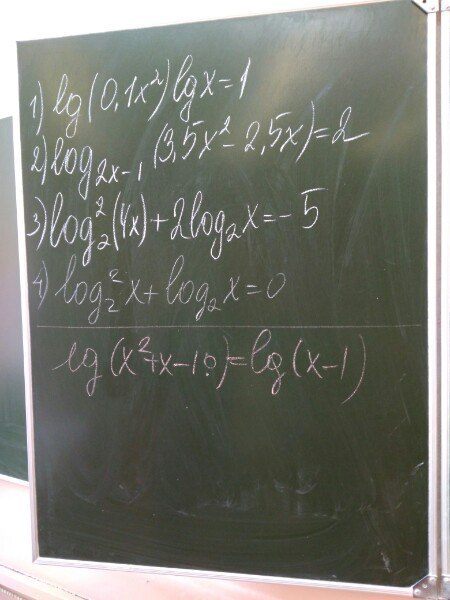 1) lg(0,1x²) lgx=1
2) log₂ₓ₋₁ (3,5x²-2,5x)=2
3) log₂²(4x)+2log₂x=-5
4) log₂²x+log₂x=0
lg(x²+x-10)=lg(x-1)